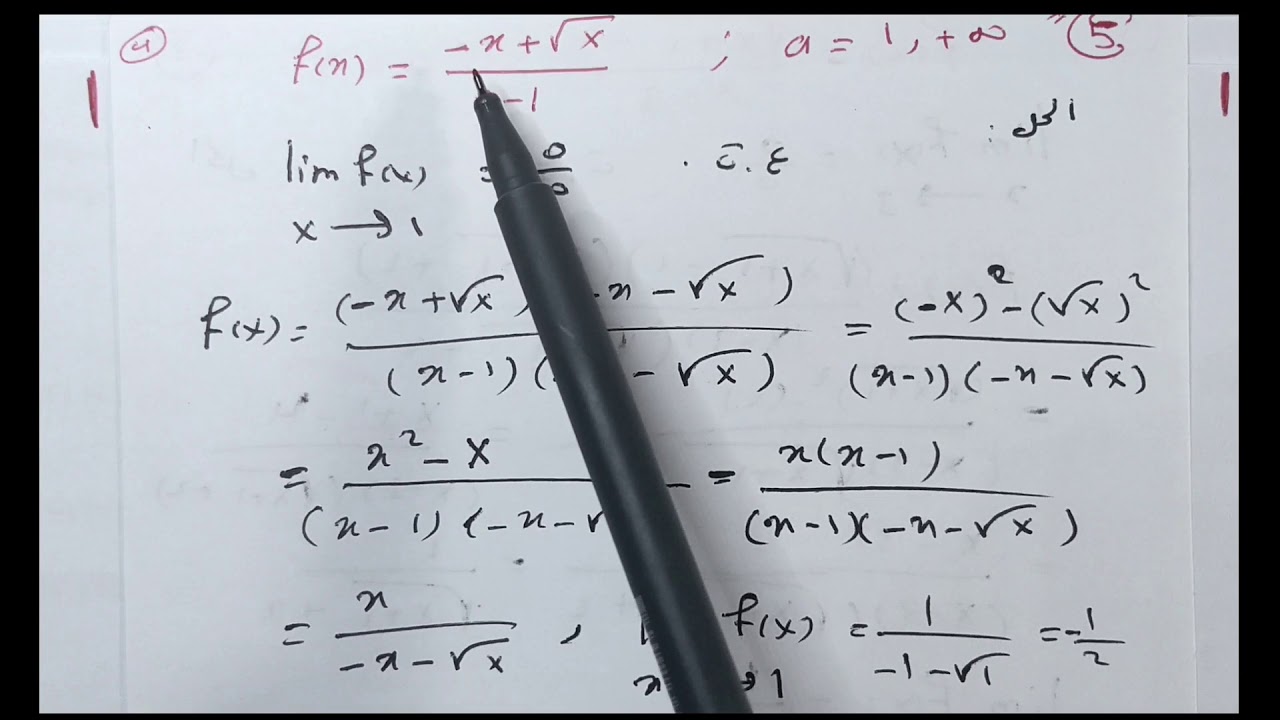 ④ f(x) = (-x + √x) / -1 ; a = 1, +∞ ⑤
الحل :
lim f(x) = 0/0 . ح.ع
x → 1
f(x) = (-x + √x) x - √x) / (x-1)( - √x) = (-x)² - (√x)² / (x-1)(-x-√x)
= x² - x / (x-1)(-x-√ = x(x-1) / (x-1)(-x-√x)
= x / -x-√x , f(x) = 1 / -1-√1 = -1/2
x → 1